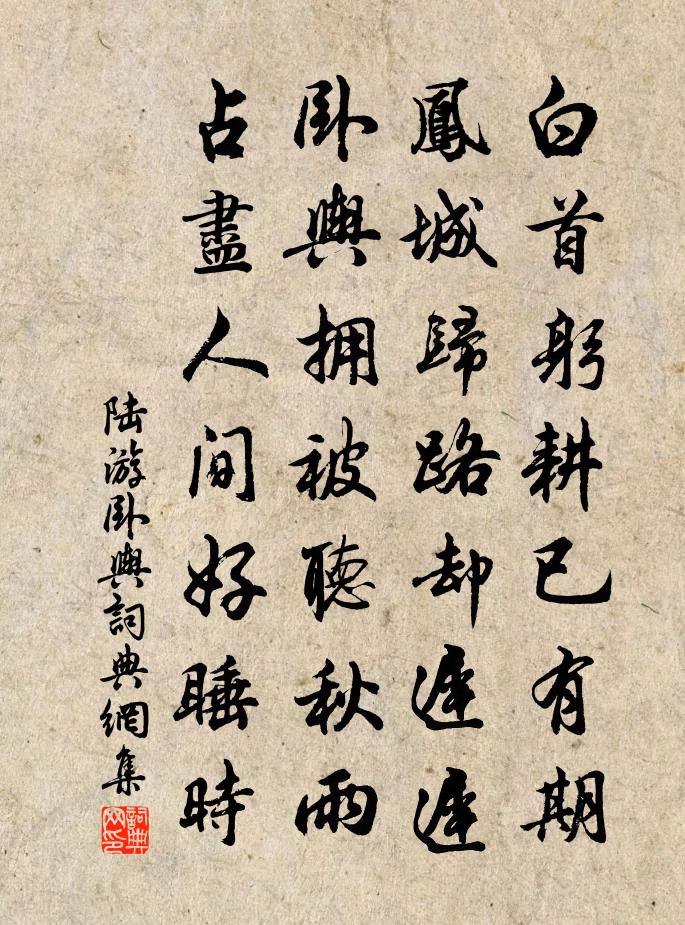 白首躬耕已有期
鳳城歸路却遲遲
卧輿擁被聽秋雨
占盡人間好睡時
陆游卧輿詞典網集
詞典网印